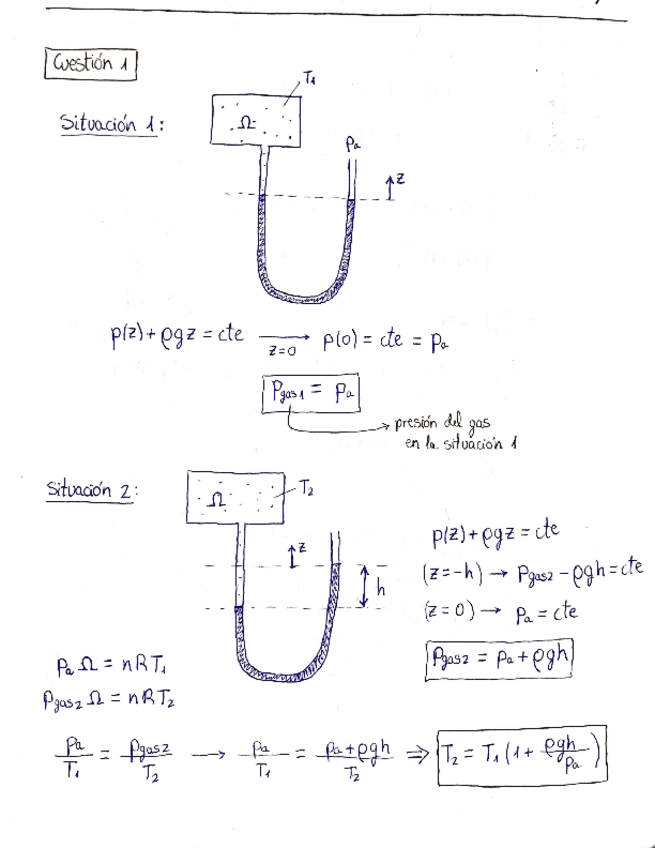 Cuestión 1
T₁
Situación 1:
Ω
pₐ
z
p(z) + ρgz = cte ⟶ p(0) = cte = pₐ
z=0
p_gas1 = pₐ
presión del gas
en la situación 1
Situación 2:
T₂
Ω
z
h
p(z) + ρgz = cte
(z=-h) → p_gas2 - ρgh = cte
(z=0) → pₐ = cte
p_gas2 = pₐ + ρgh
pₐ Ω = nRT₁
p_gas2 Ω = nRT₂
pₐ/T₁ = p_gas2/T₂ ⟶ pₐ/T₁ = (pₐ+ρgh)/T₂ ⇒ T₂ = T₁ (1 + ρgh/pₐ)